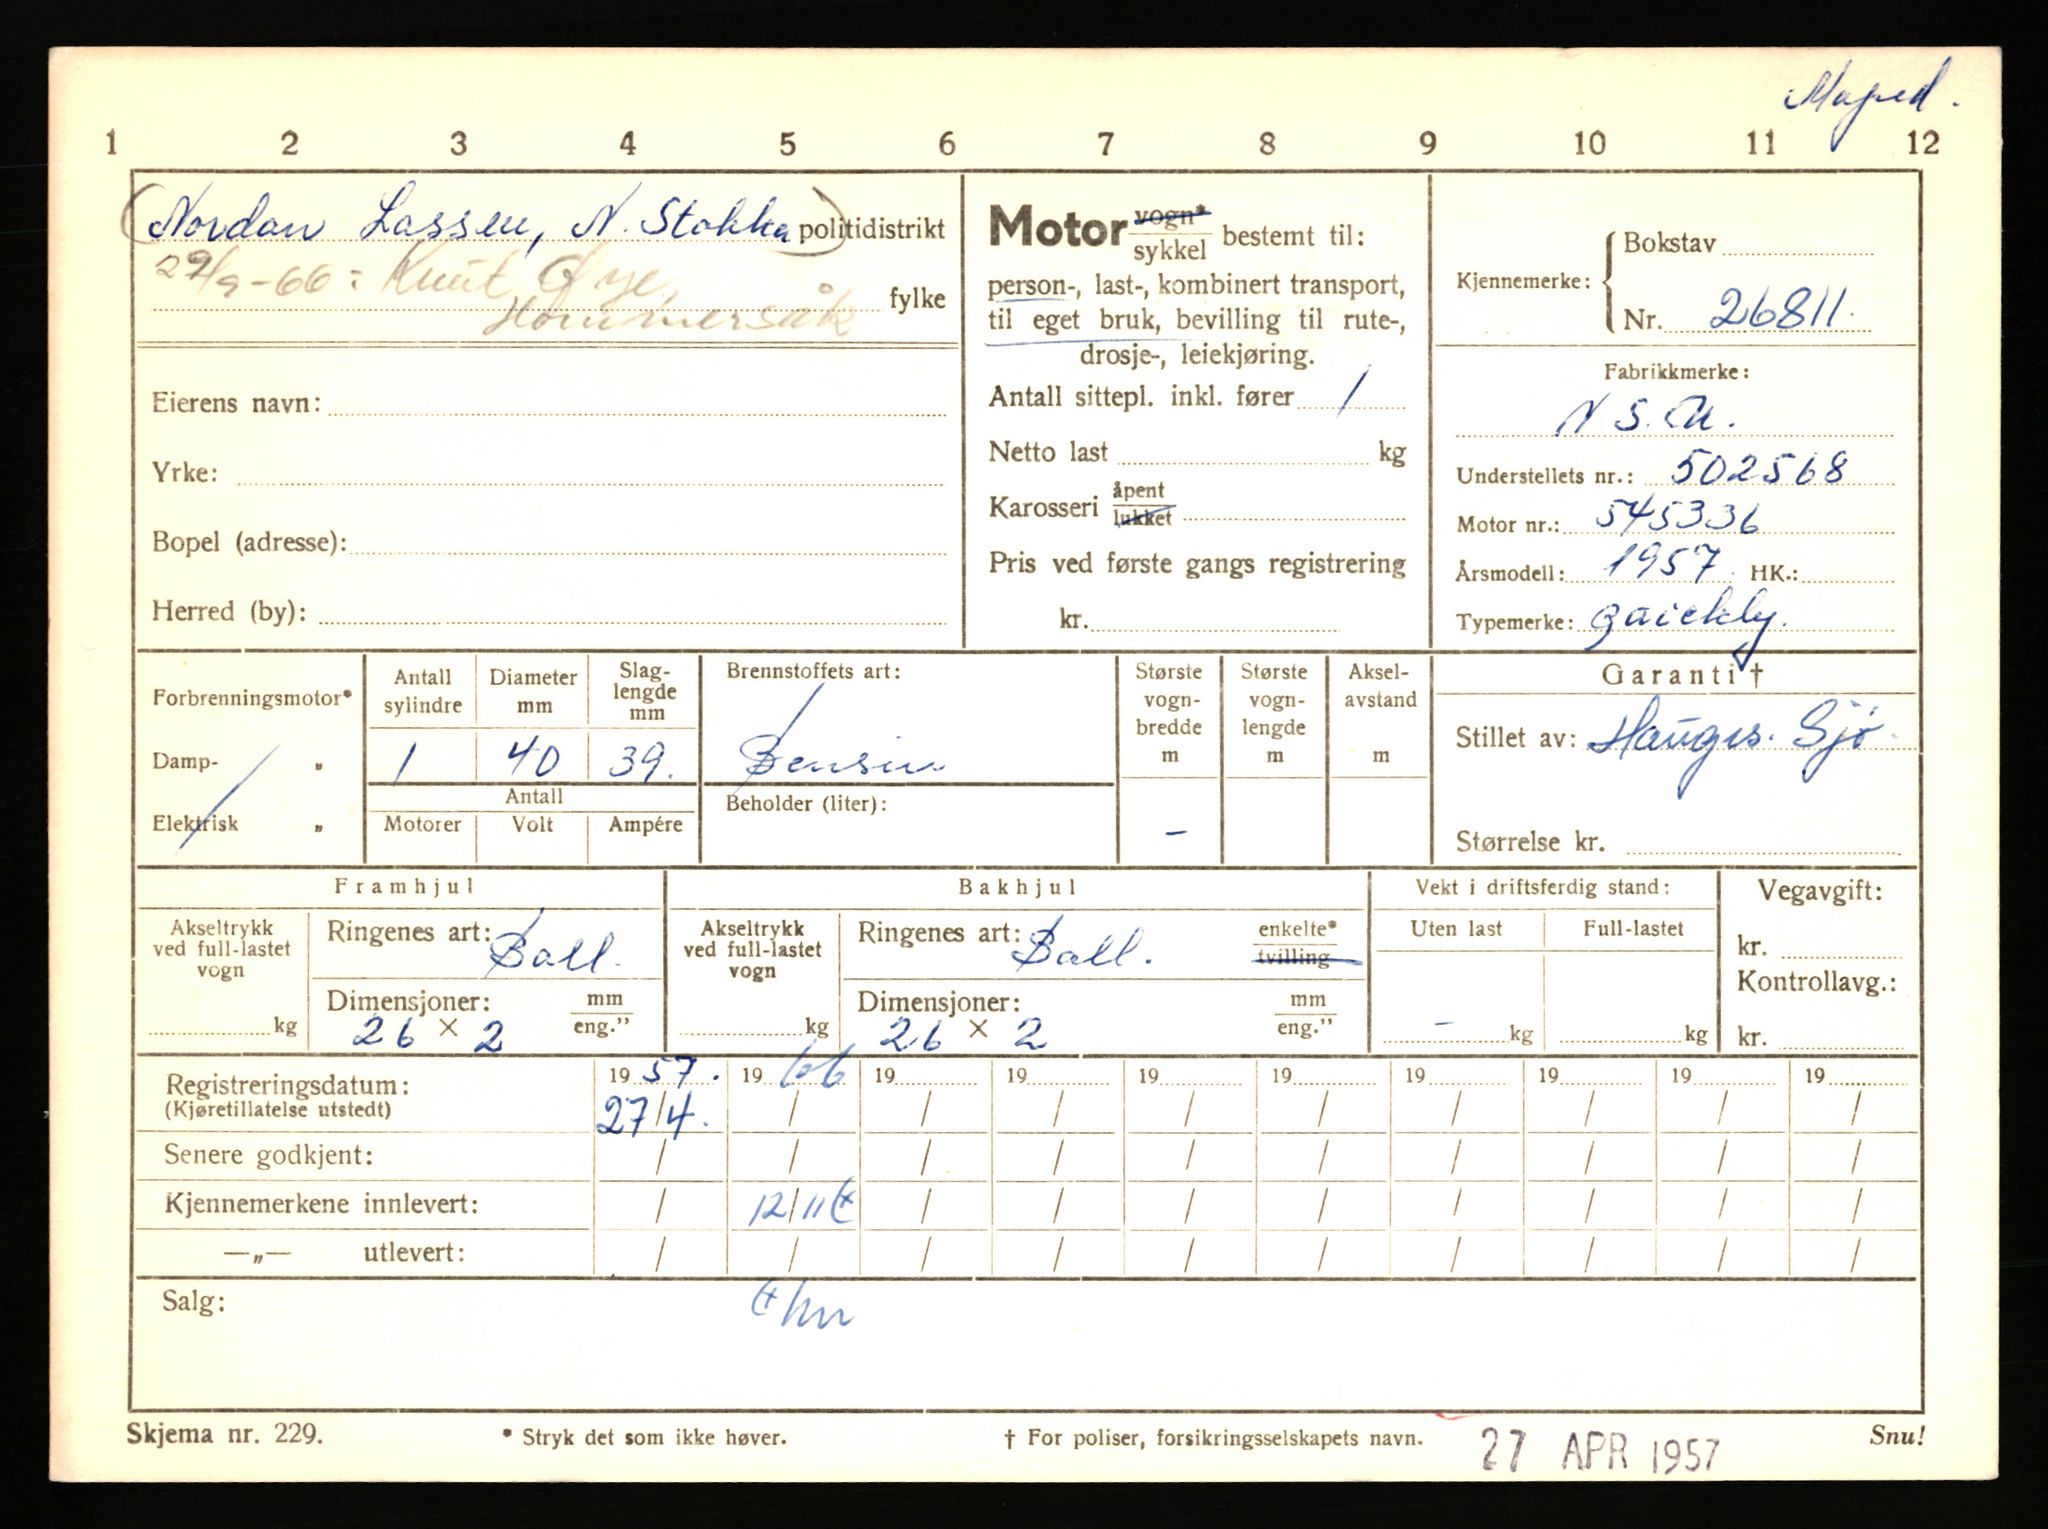 Moped.
1 2 3 4 5 6 7 8 9 10 11 12
(Nordan Lassen, N. Stokka) politidistrikt
29/9-66: Knut Øye,
Hommersåk fylke
Eierens navn:
Yrke:
Bopel (adresse):
Herred (by):
Motor vogn* sykkel bestemt til:
person-, last-, kombinert transport,
til eget bruk, bevilling til rute-,
drosje-, leiekjøring.
Antall sittepl. inkl. fører 1
Netto last kg
Karosseri åpent lukket
Pris ved første gangs registrering
kr.
Kjennemerke: Bokstav
Nr. 26811.
Fabrikkmerke:
N.S.U.
Understellets nr.: 502568
Motor nr.: 545336
Årsmodell: 1957 HK.:
Typemerke: Quickly.
Forbrenningsmotor*
Damp- "
Elektrisk "
Antall sylindre
1
Diameter mm
40
Slag-lengde mm
39.
Antall
Motorer Volt Ampére
Brennstoffets art:
Bensin
Beholder (liter):
Største vogn-bredde m
-
Største vogn-lengde m
Aksel-avstand m
Garanti †
Stillet av: Hauges. Sjø
Størrelse kr.
Framhjul
Akseltrykk ved full-lastet vogn
kg
Ringenes art: Ball.
Dimensjoner: mm eng."
26 × 2
Bakhjul
Akseltrykk ved full-lastet vogn
kg
Ringenes art: Ball. enkelte* tvilling
Dimensjoner: mm eng."
26 × 2
Vekt i driftsferdig stand:
Uten last Full-lastet
- kg kg
Vegavgift:
kr.
Kontrollavg.:
kr.
Registreringsdatum: 1957. 1966 19 19 19 19 19 19 19 19
(Kjøretillatelse utstedt) 27/4. / / / / / / / / /
Senere godkjent: / / / / / / / / / /
Kjennemerkene innlevert: / 12/11 / / / / / / / /
—„— utlevert: / / / / / / / / / /
Salg:
Skjema nr. 229. * Stryk det som ikke høver. † For poliser, forsikringsselskapets navn. Snu!
27 APR 1957